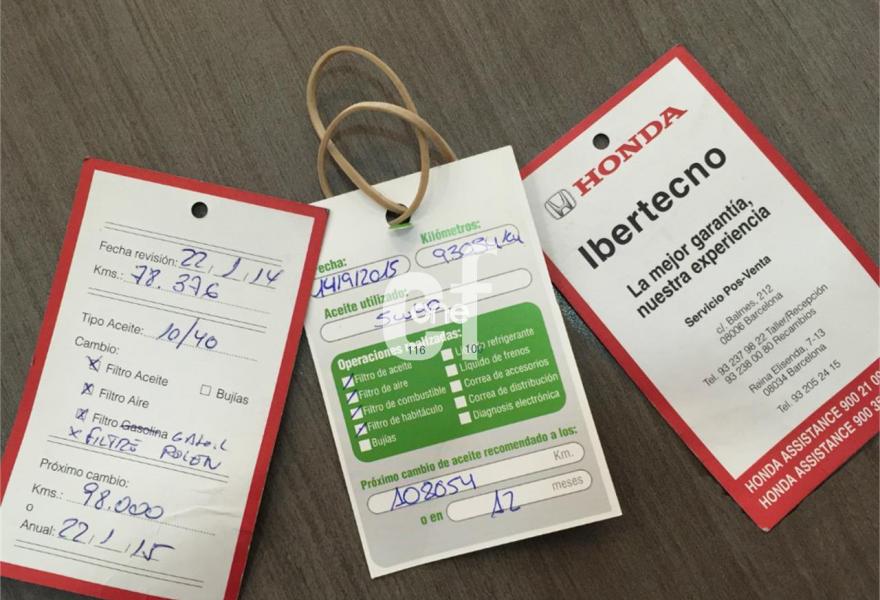 Fecha revisión: 22, 1, 14
Kms.: 78.376
Tipo Aceite: 10/40
Cambio:
x Filtro Aceite
x Filtro Aire
Bujías
x Filtro Gasolina GASOIL
x FILTRE POLEN
Próximo cambio:
Kms.: 98.000
o
Anual: 22, 1, 15
Fecha:
Kilómetros:
14/9/2015
93054 Km
Aceite utilizado:
5W30
Operaciones realizadas:
Filtro de aceite
Filtro de aire
Filtro de combustible
Filtro de habitáculo
Bujías
Líquido refrigerante
Líquido de frenos
Correa de accesorios
Correa de distribución
Diagnosis electrónica
116
100
Próximo cambio de aceite recomendado a los:
108054 Km.
o en 12 meses
HONDA
Ibertecno
La mejor garantía,
nuestra experiencia
Servicio Pos-Venta
c/. Balmes, 212
08006 Barcelona
Tel. 93 237 98 22 Taller/Recepción
93 238 00 80 Recambios
Reina Elisenda, 7-13
08034 Barcelona
Tel. 93 205 24 15
HONDA ASSISTANCE 900 21 0
HONDA ASSISTANCE 900 3
cf
one